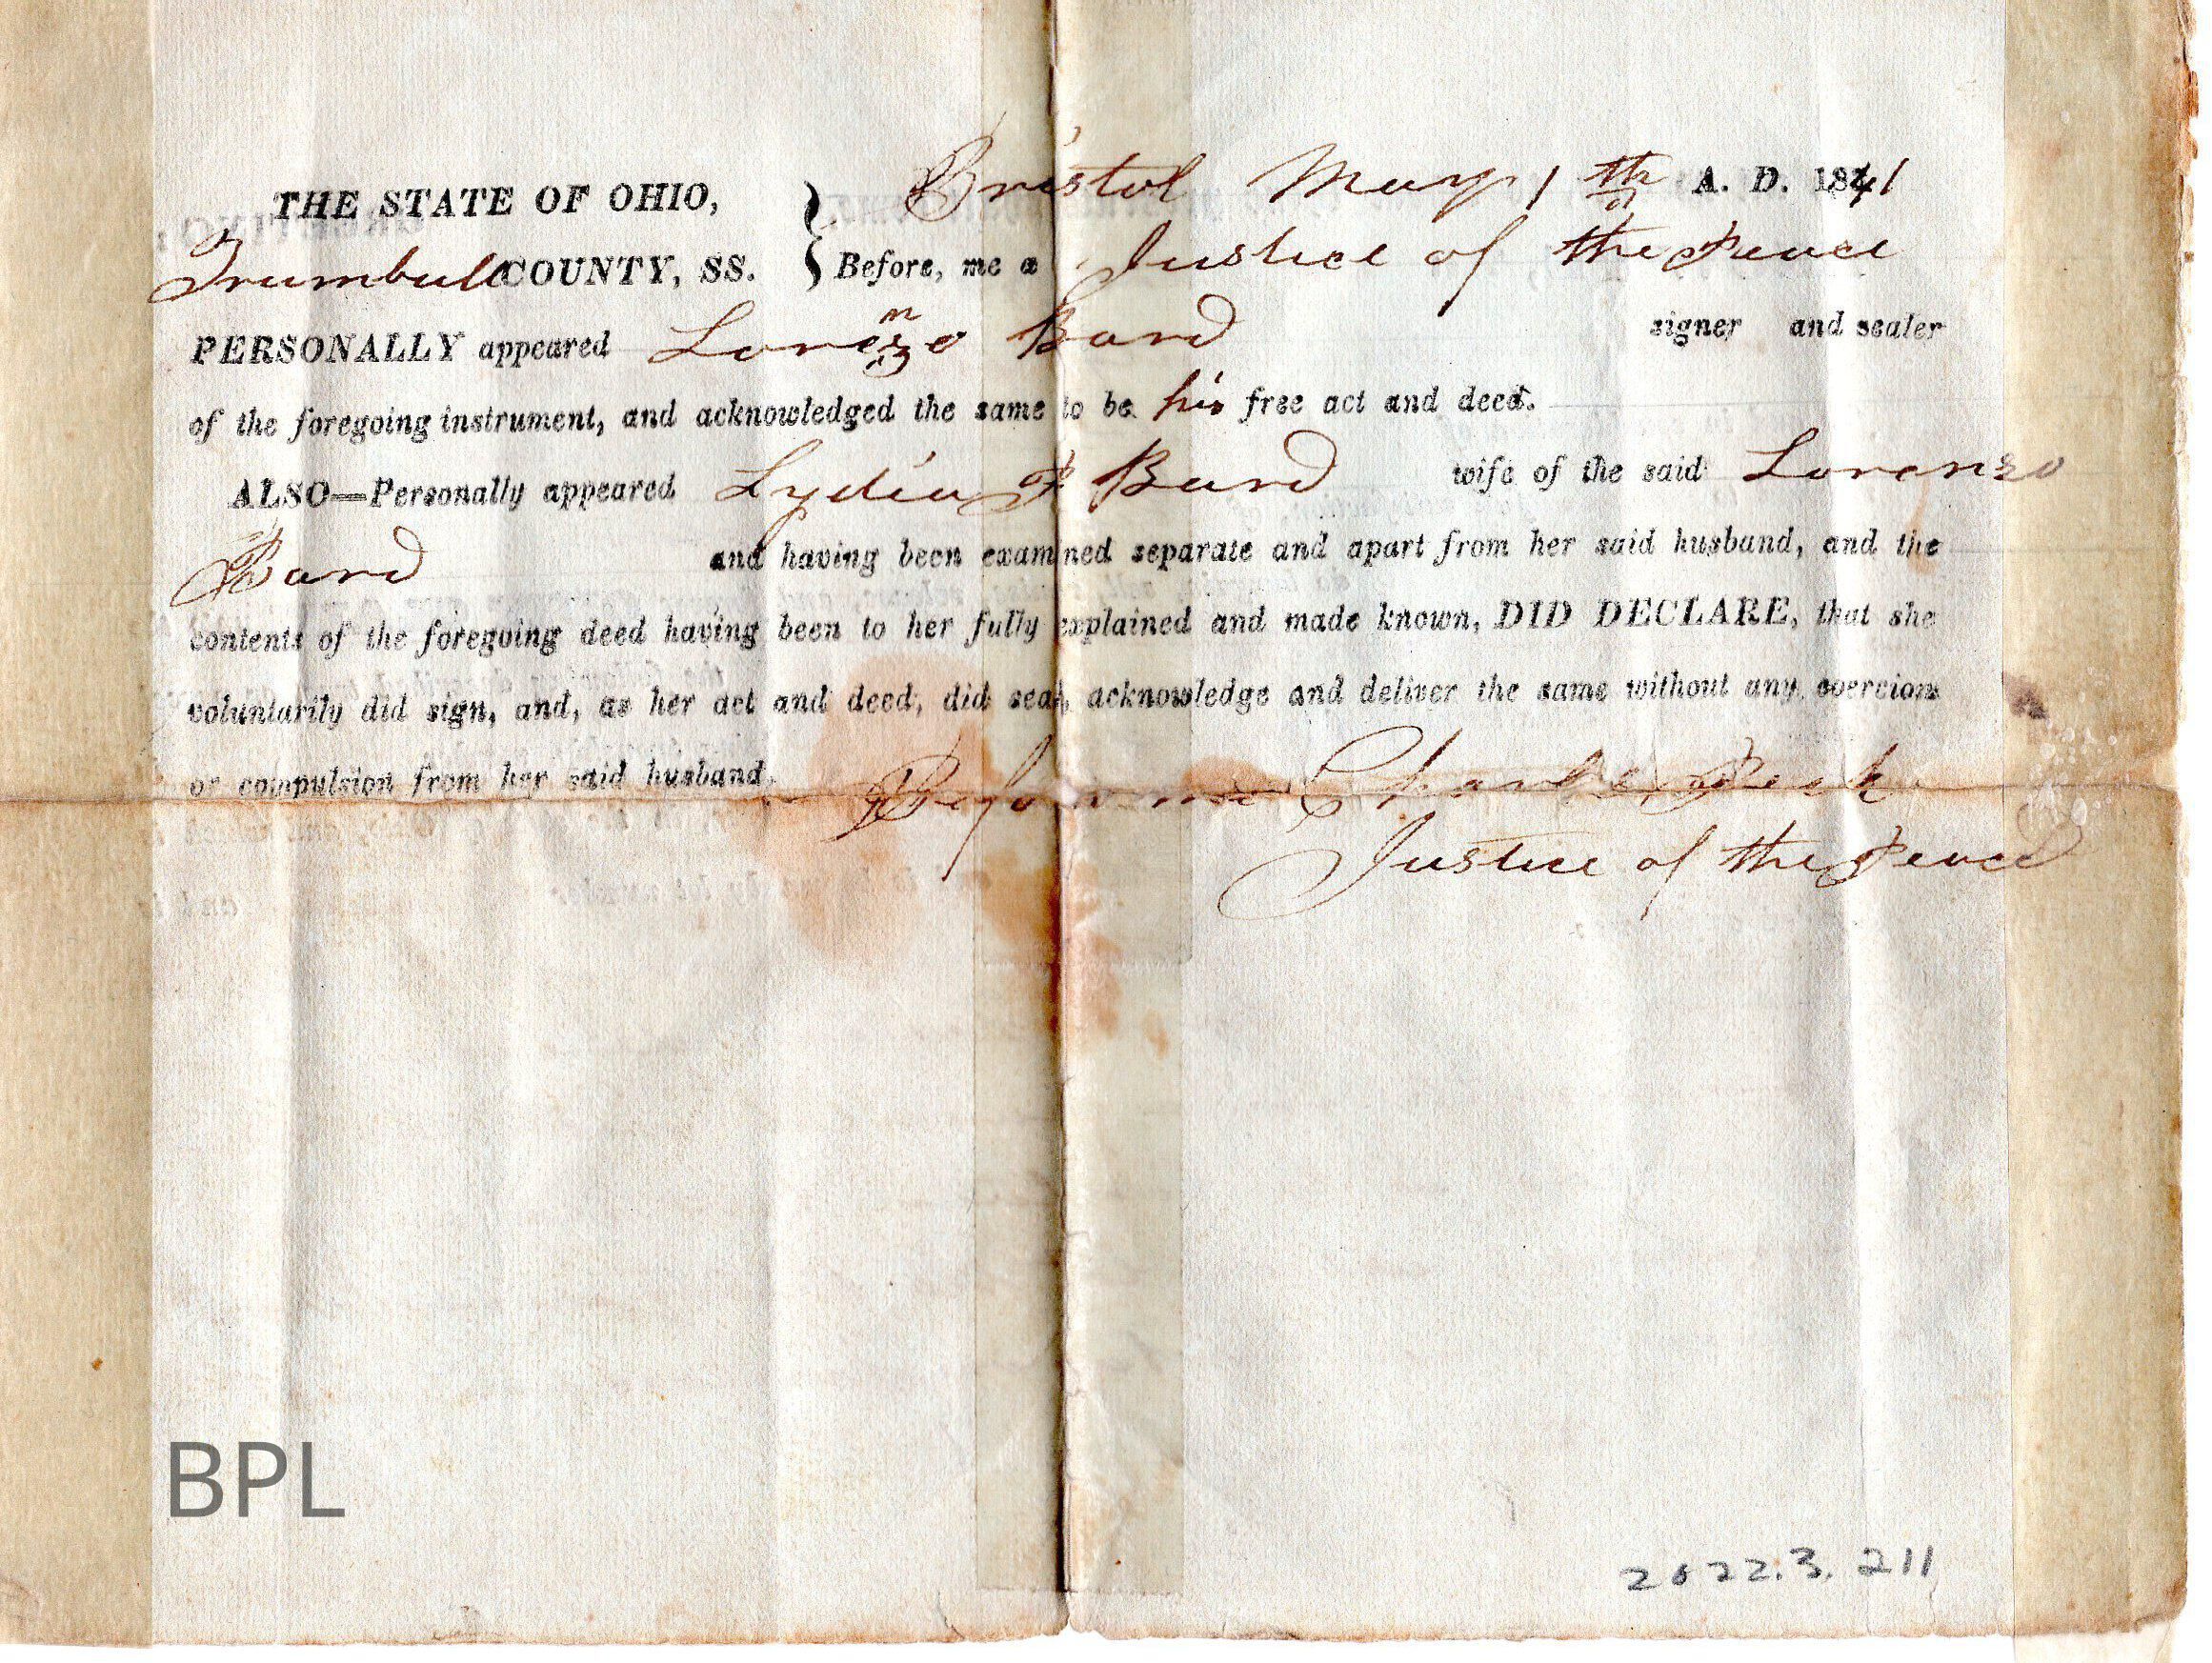 THE STATE OF OHIO, } Bristol May 1th A. D. 1841
Trumbull COUNTY, SS. } Before, me a Justice of the Peace
PERSONALLY appeared Lorenzo Bard signer and sealer
of the foregoing instrument, and acknowledged the same to be his free act and deed.
ALSO—Personally appeared Lydia P. Bard wife of the said Lorenzo
Bard and having been examined separate and apart from her said husband, and the
contents of the foregoing deed having been to her fully explained and made known, DID DECLARE, that she
voluntarily did sign, and, as her act and deed, did seal, acknowledge and deliver the same without any coercion
or compulsion from her said husband. Before me Charles Peck
Justice of the Peace
BPL
2022.3.211